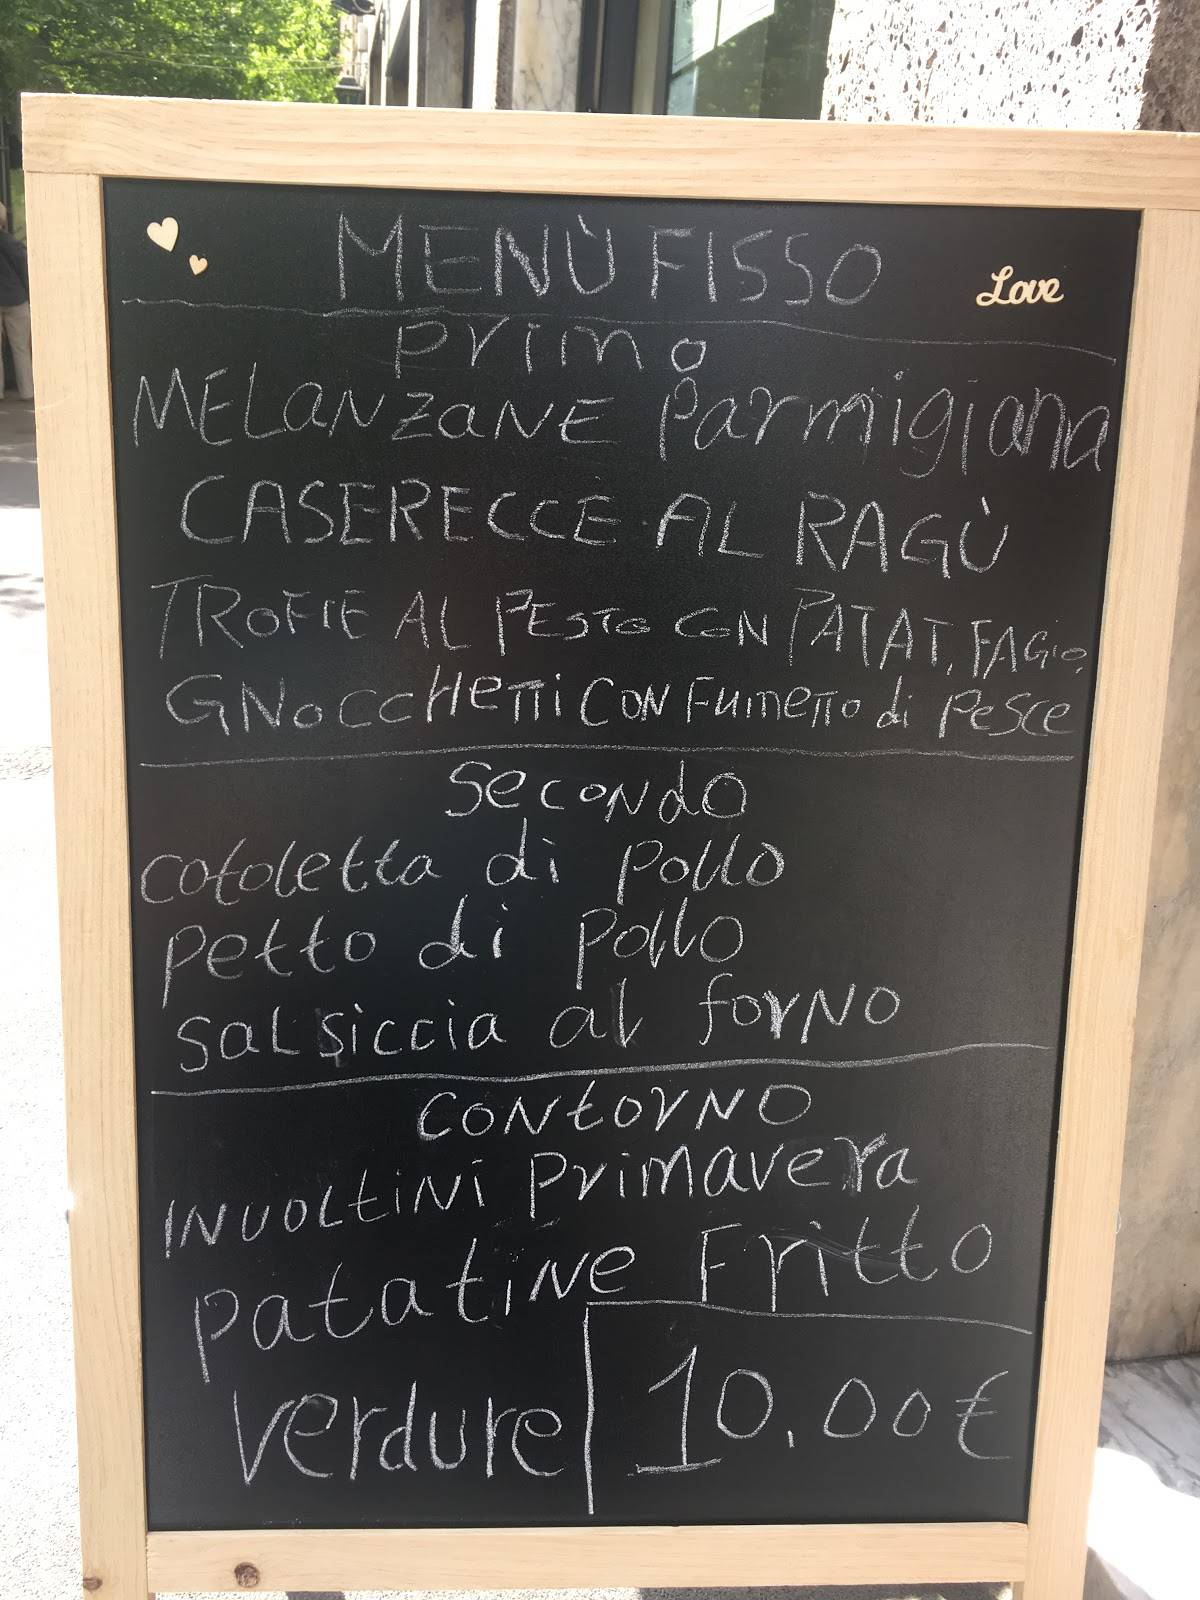 MENÙ FISSO
Love
primo
MELANZANE Parmigiana
CASERECCE AL RAGÙ
TROFIE AL PESTO CON PATAT, FAGIO,
GNOCCHETTI CON FUMETTO di PESCE
Secondo
cotoletta di pollo
petto di pollo
salsiccia al forno
CONTORNO
INVOLTINI PRIMAVERA
patatine Fritto
verdure
10,00€